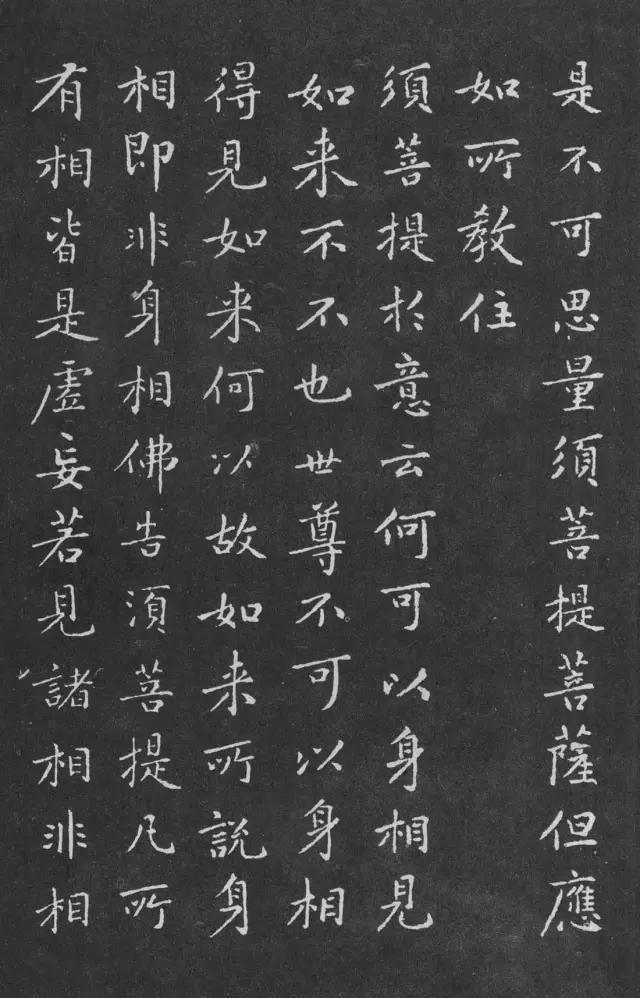 是不可思量須菩提菩薩但應
如所教住
須菩提於意云何可以身相見
如来不不也世尊不可以身相
得見如来何以故如来所説身
相即非身相佛告湏菩提凡所
有相皆是虛妄若見諸相非相